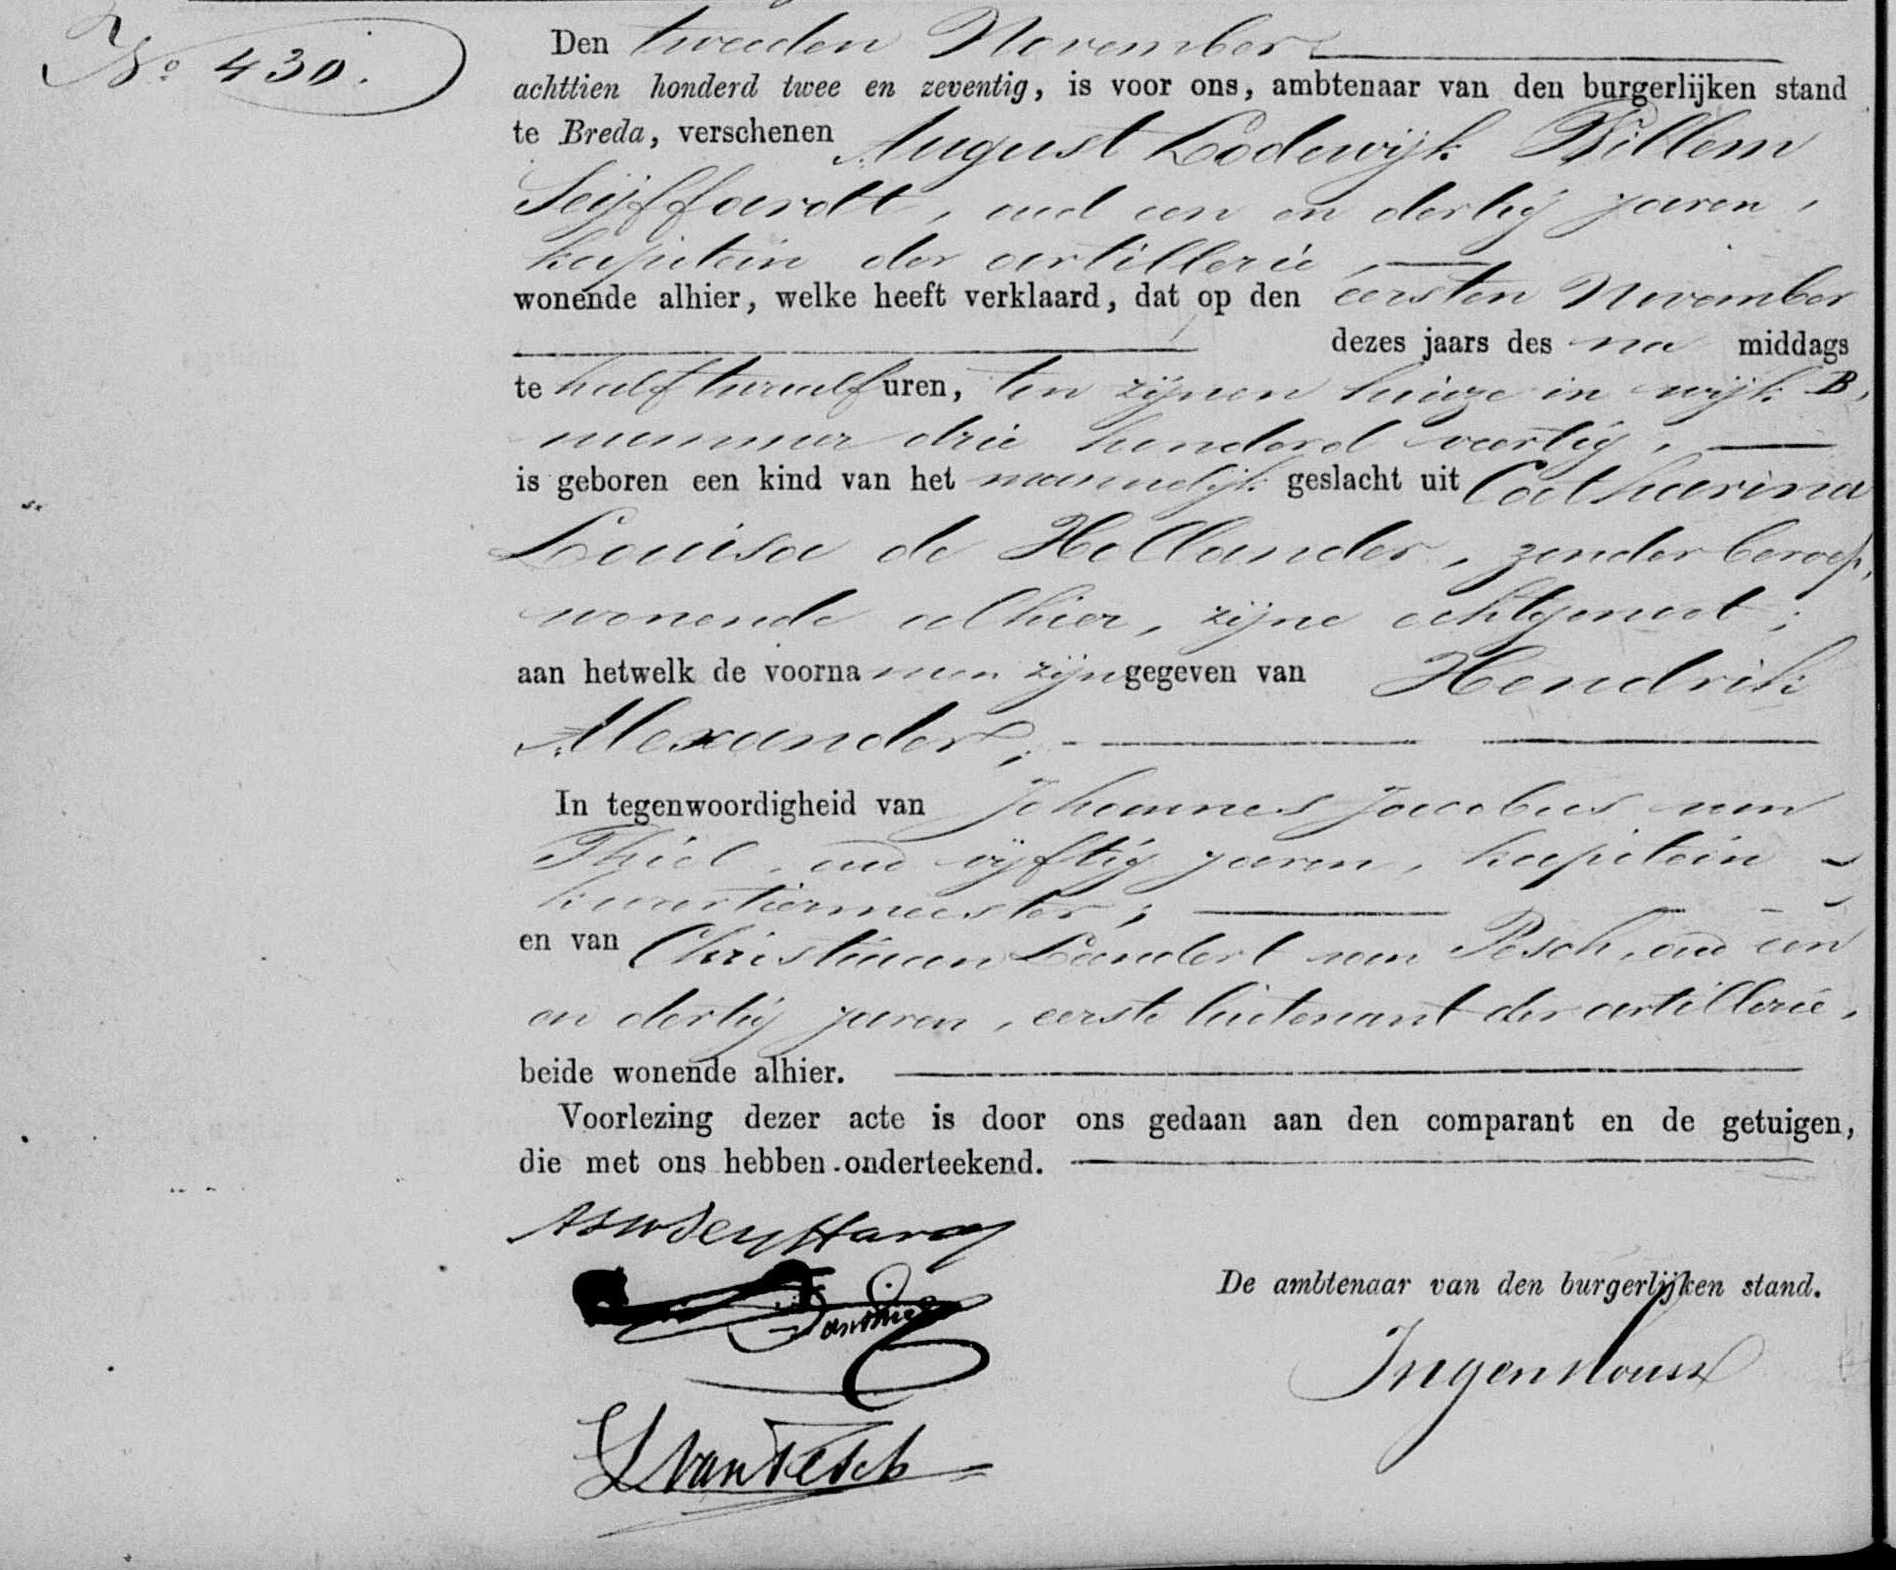 No 430.
Den tweeden November
achttien honderd twee en zeventig, is voor ons, ambtenaar van den burgerlijken stand
te Breda, verschenen August Lodewijk Willem
Seijffardt, oud een en dertig jaren,
kapitein der artillerie,
wonende alhier, welke heeft verklaard, dat op den eersten November
dezes jaars des na middags
te half twaalf uren, ten zijnen huize in wijk B,
nummer drie honderd veertig,
is geboren een kind van het mannelijk geslacht uit Catharina
Louisa de Hollander, zonder beroep,
wonende alhier, zijne echtgenoot;
aan hetwelk de voorna men zijn gegeven van Hendrik
Alexander;
In tegenwoordigheid van Johannes Jacobus van
Thiel, oud vijftig jaren, kapitein
kwartiermeester;
en van Christiaan Landert van Pesch, oud een
en dertig jaren, eerste luitenant der artillerie,
beide wonende alhier.
Voorlezing dezer acte is door ons gedaan aan den comparant en de getuigen,
die met ons hebben onderteekend.
ALW Seyffardt
van Thiel
De ambtenaar van den burgerlijken stand.
Ingenhousz
L van Pesch